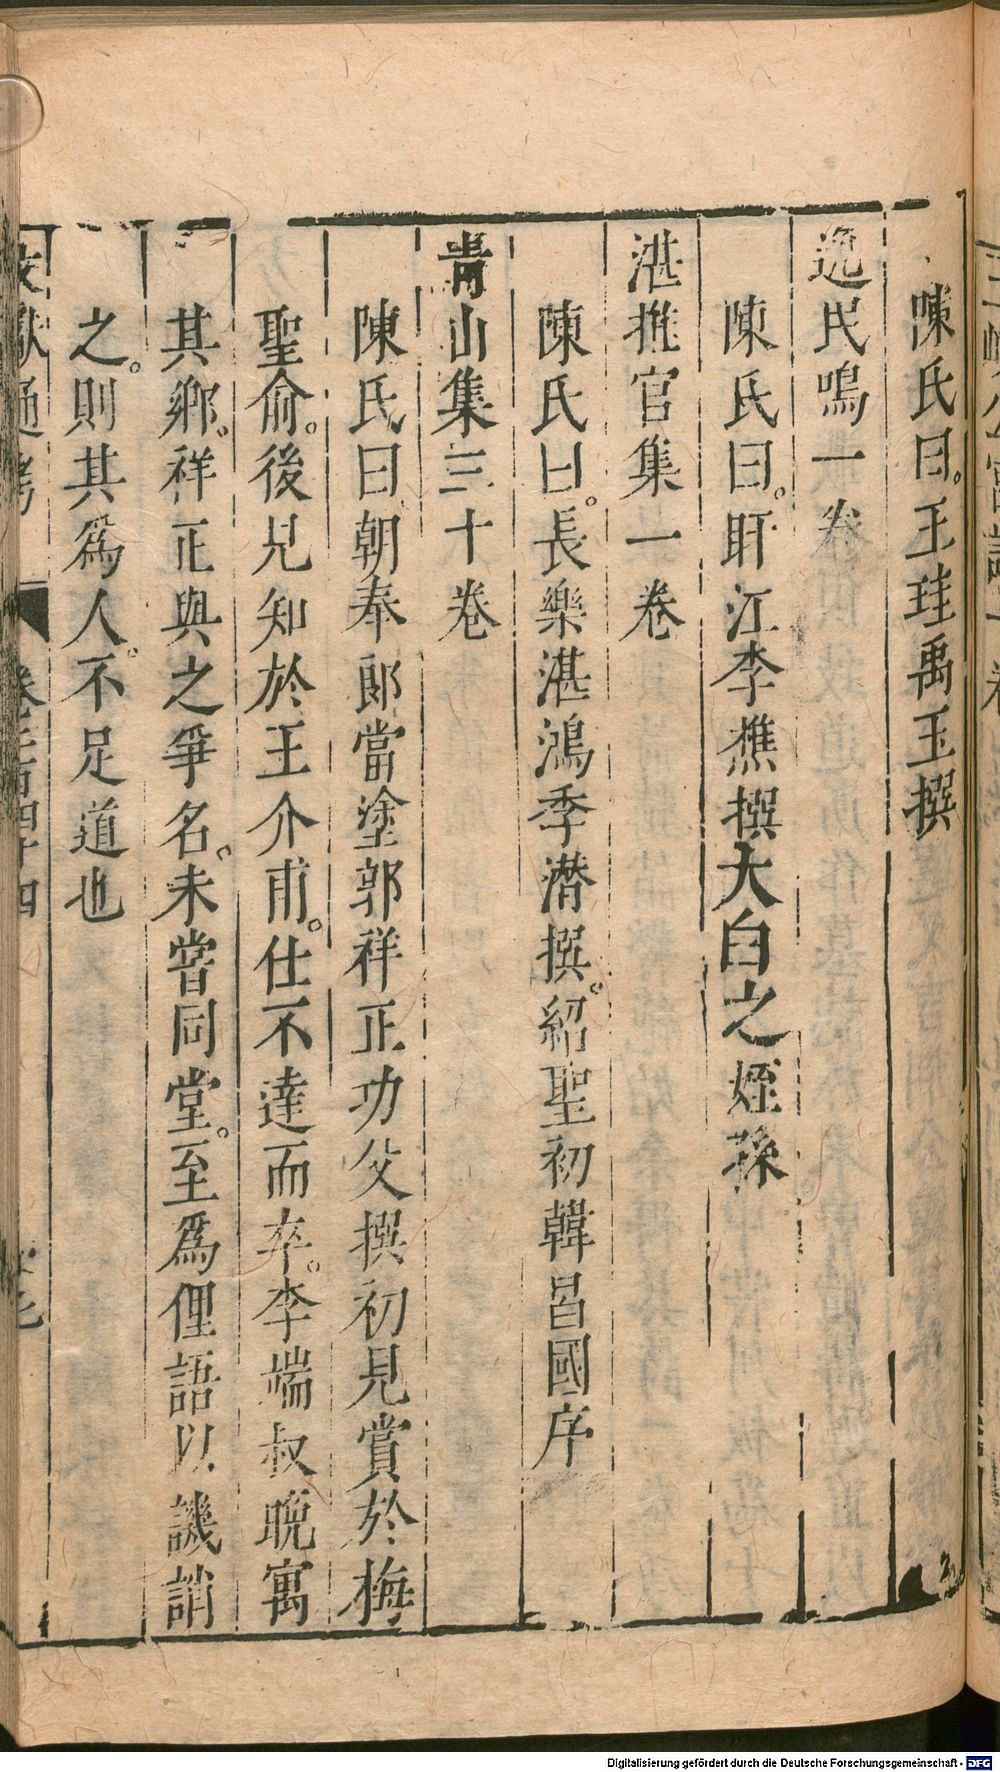 陳氏曰。王珪禹玉撰
逸民鳴一卷
陳氏曰。盱江李樵撰大白之姪孫
湛推官集一卷
陳氏曰。長樂湛鴻季潛撰。紹聖初韓昌國序
青山集三十卷
陳氏曰朝奉郎當塗郭祥正功父撰初見賞於梅
聖俞。後見知於王介甫。仕不達而卒。李端叔晚寓
其鄉。祥正與之爭名。未嘗同堂。至爲俚語以譏誚
之。則其爲人。不足道也
文獻通考 卷二百四十四
Digitalisierung gefördert durch die Deutsche Forschungsgemeinschaft - DFG